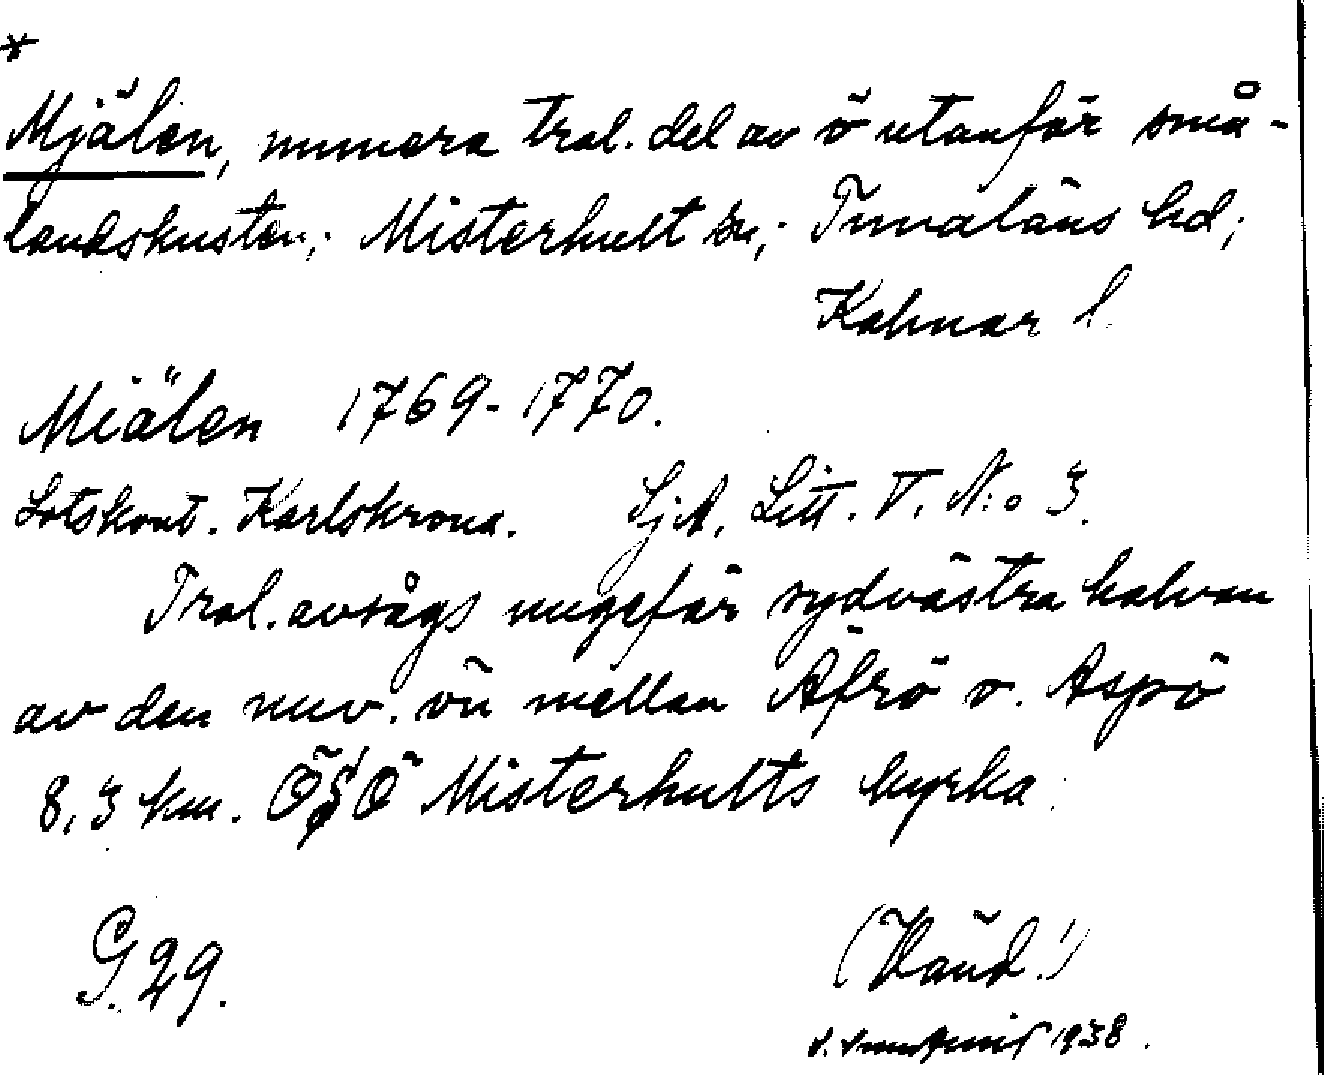 *
Mjälen, numera trol. del av ö utanför små-
landskusten; Misterhult sn; Tunaläns hd;
Kalmar l.
Miälen 1769-1770.
Lotskont. Karlskrona. SjA. Litt. V. N:o 3.
Trol. avsågs ungefär sydvästra halvan
av den nuv. ön mellan Äfrö o. Äspö
8,3 km. ÖSÖ Misterhults kyrka.
G. 29.
(Vänd!)
1938.